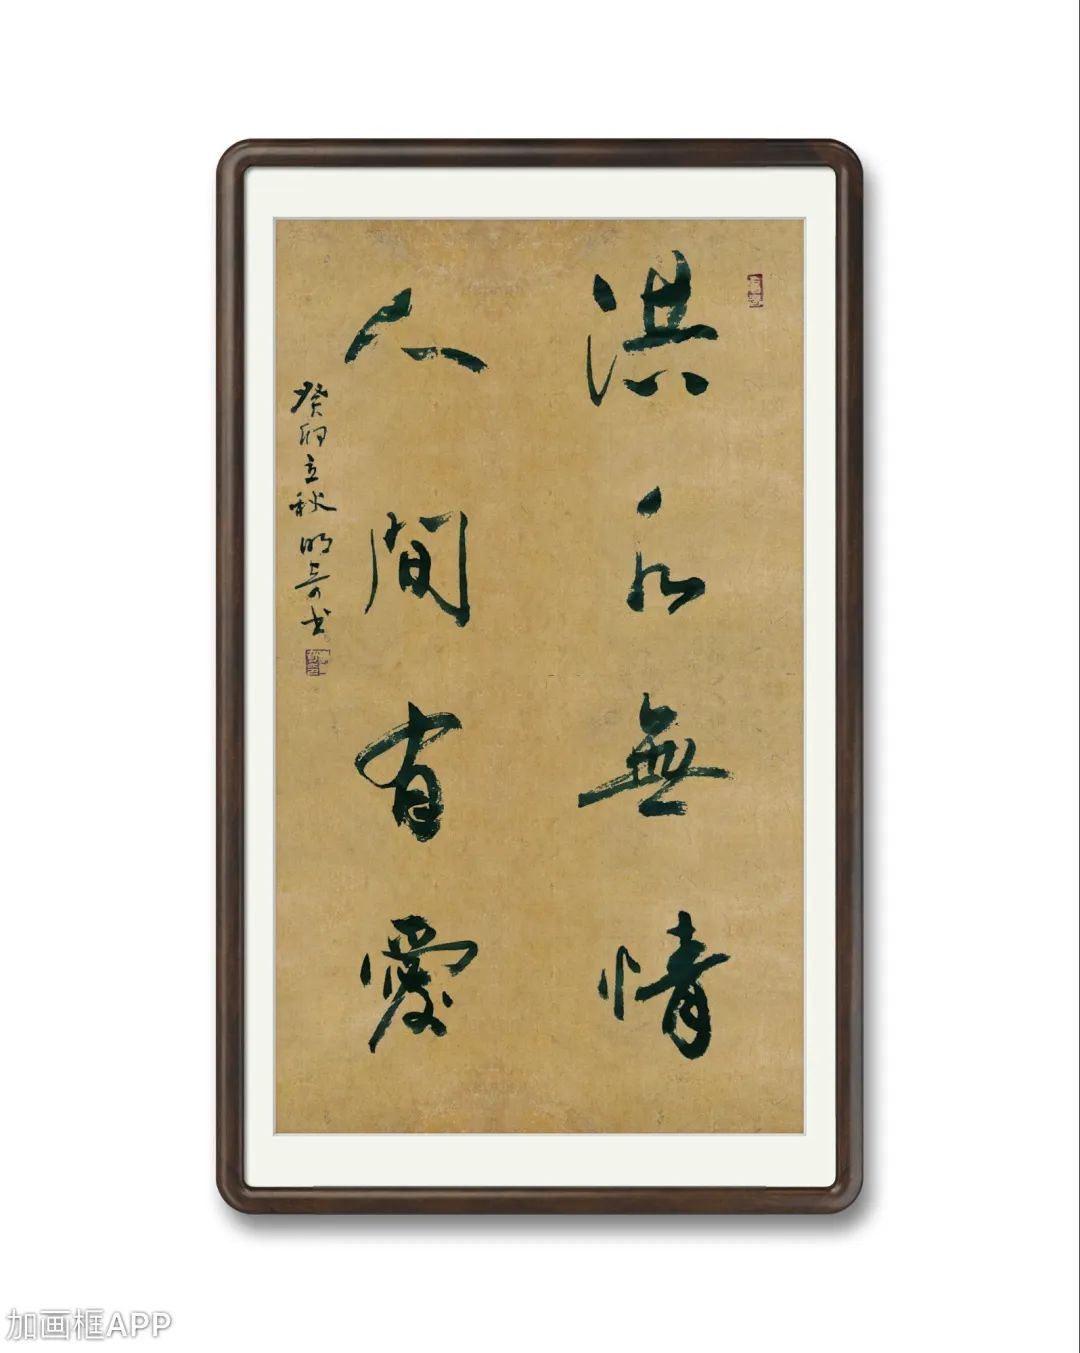 洪水無情
人間有愛
癸卯立秋明奇书
加画框APP